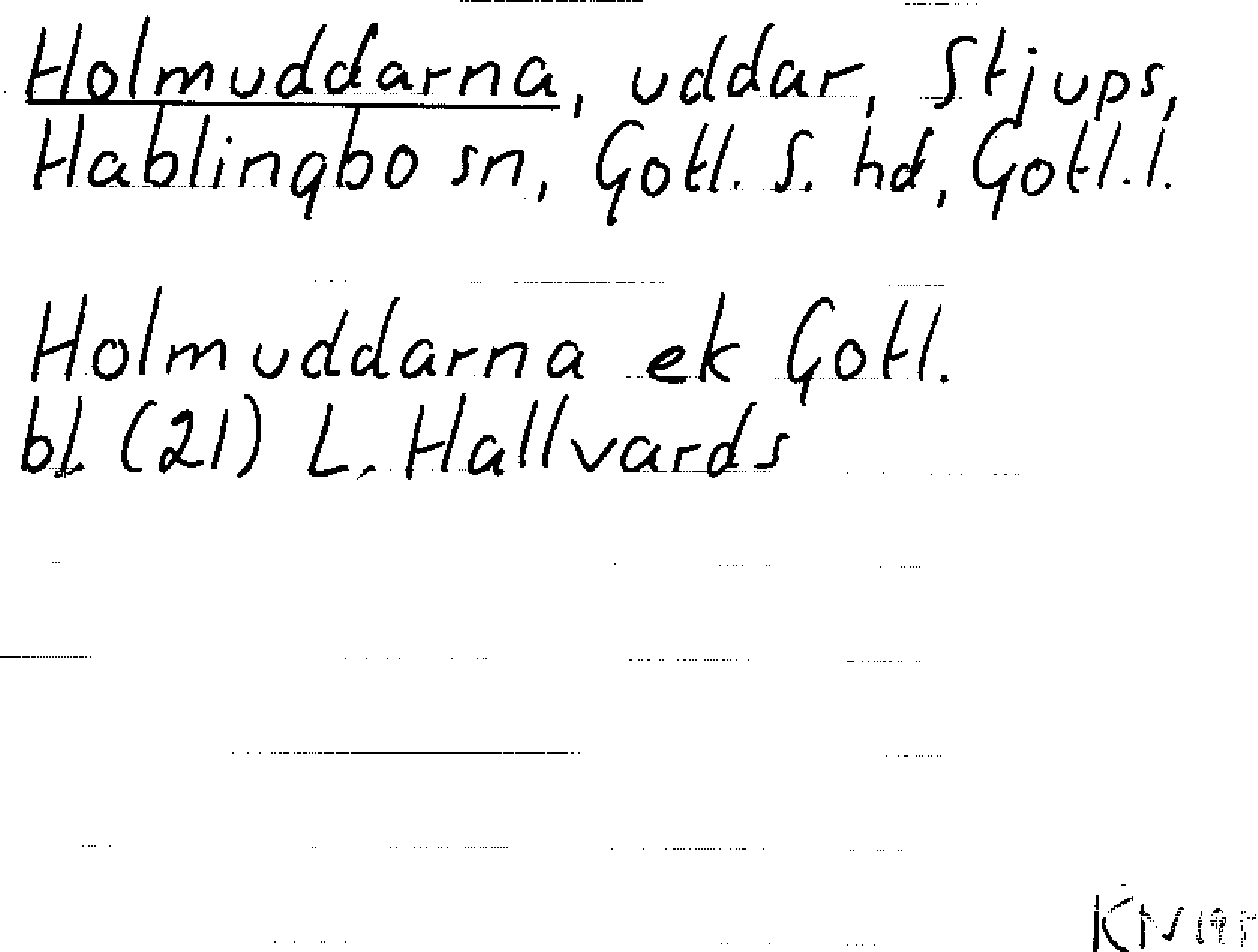 Holmuddarna, uddar, Stjups,
Hablingbo sn, Gotl. S. hd, Gotl. l.
Holmuddarna ek Gotl.
bl. (21) L. Hallvards
KN